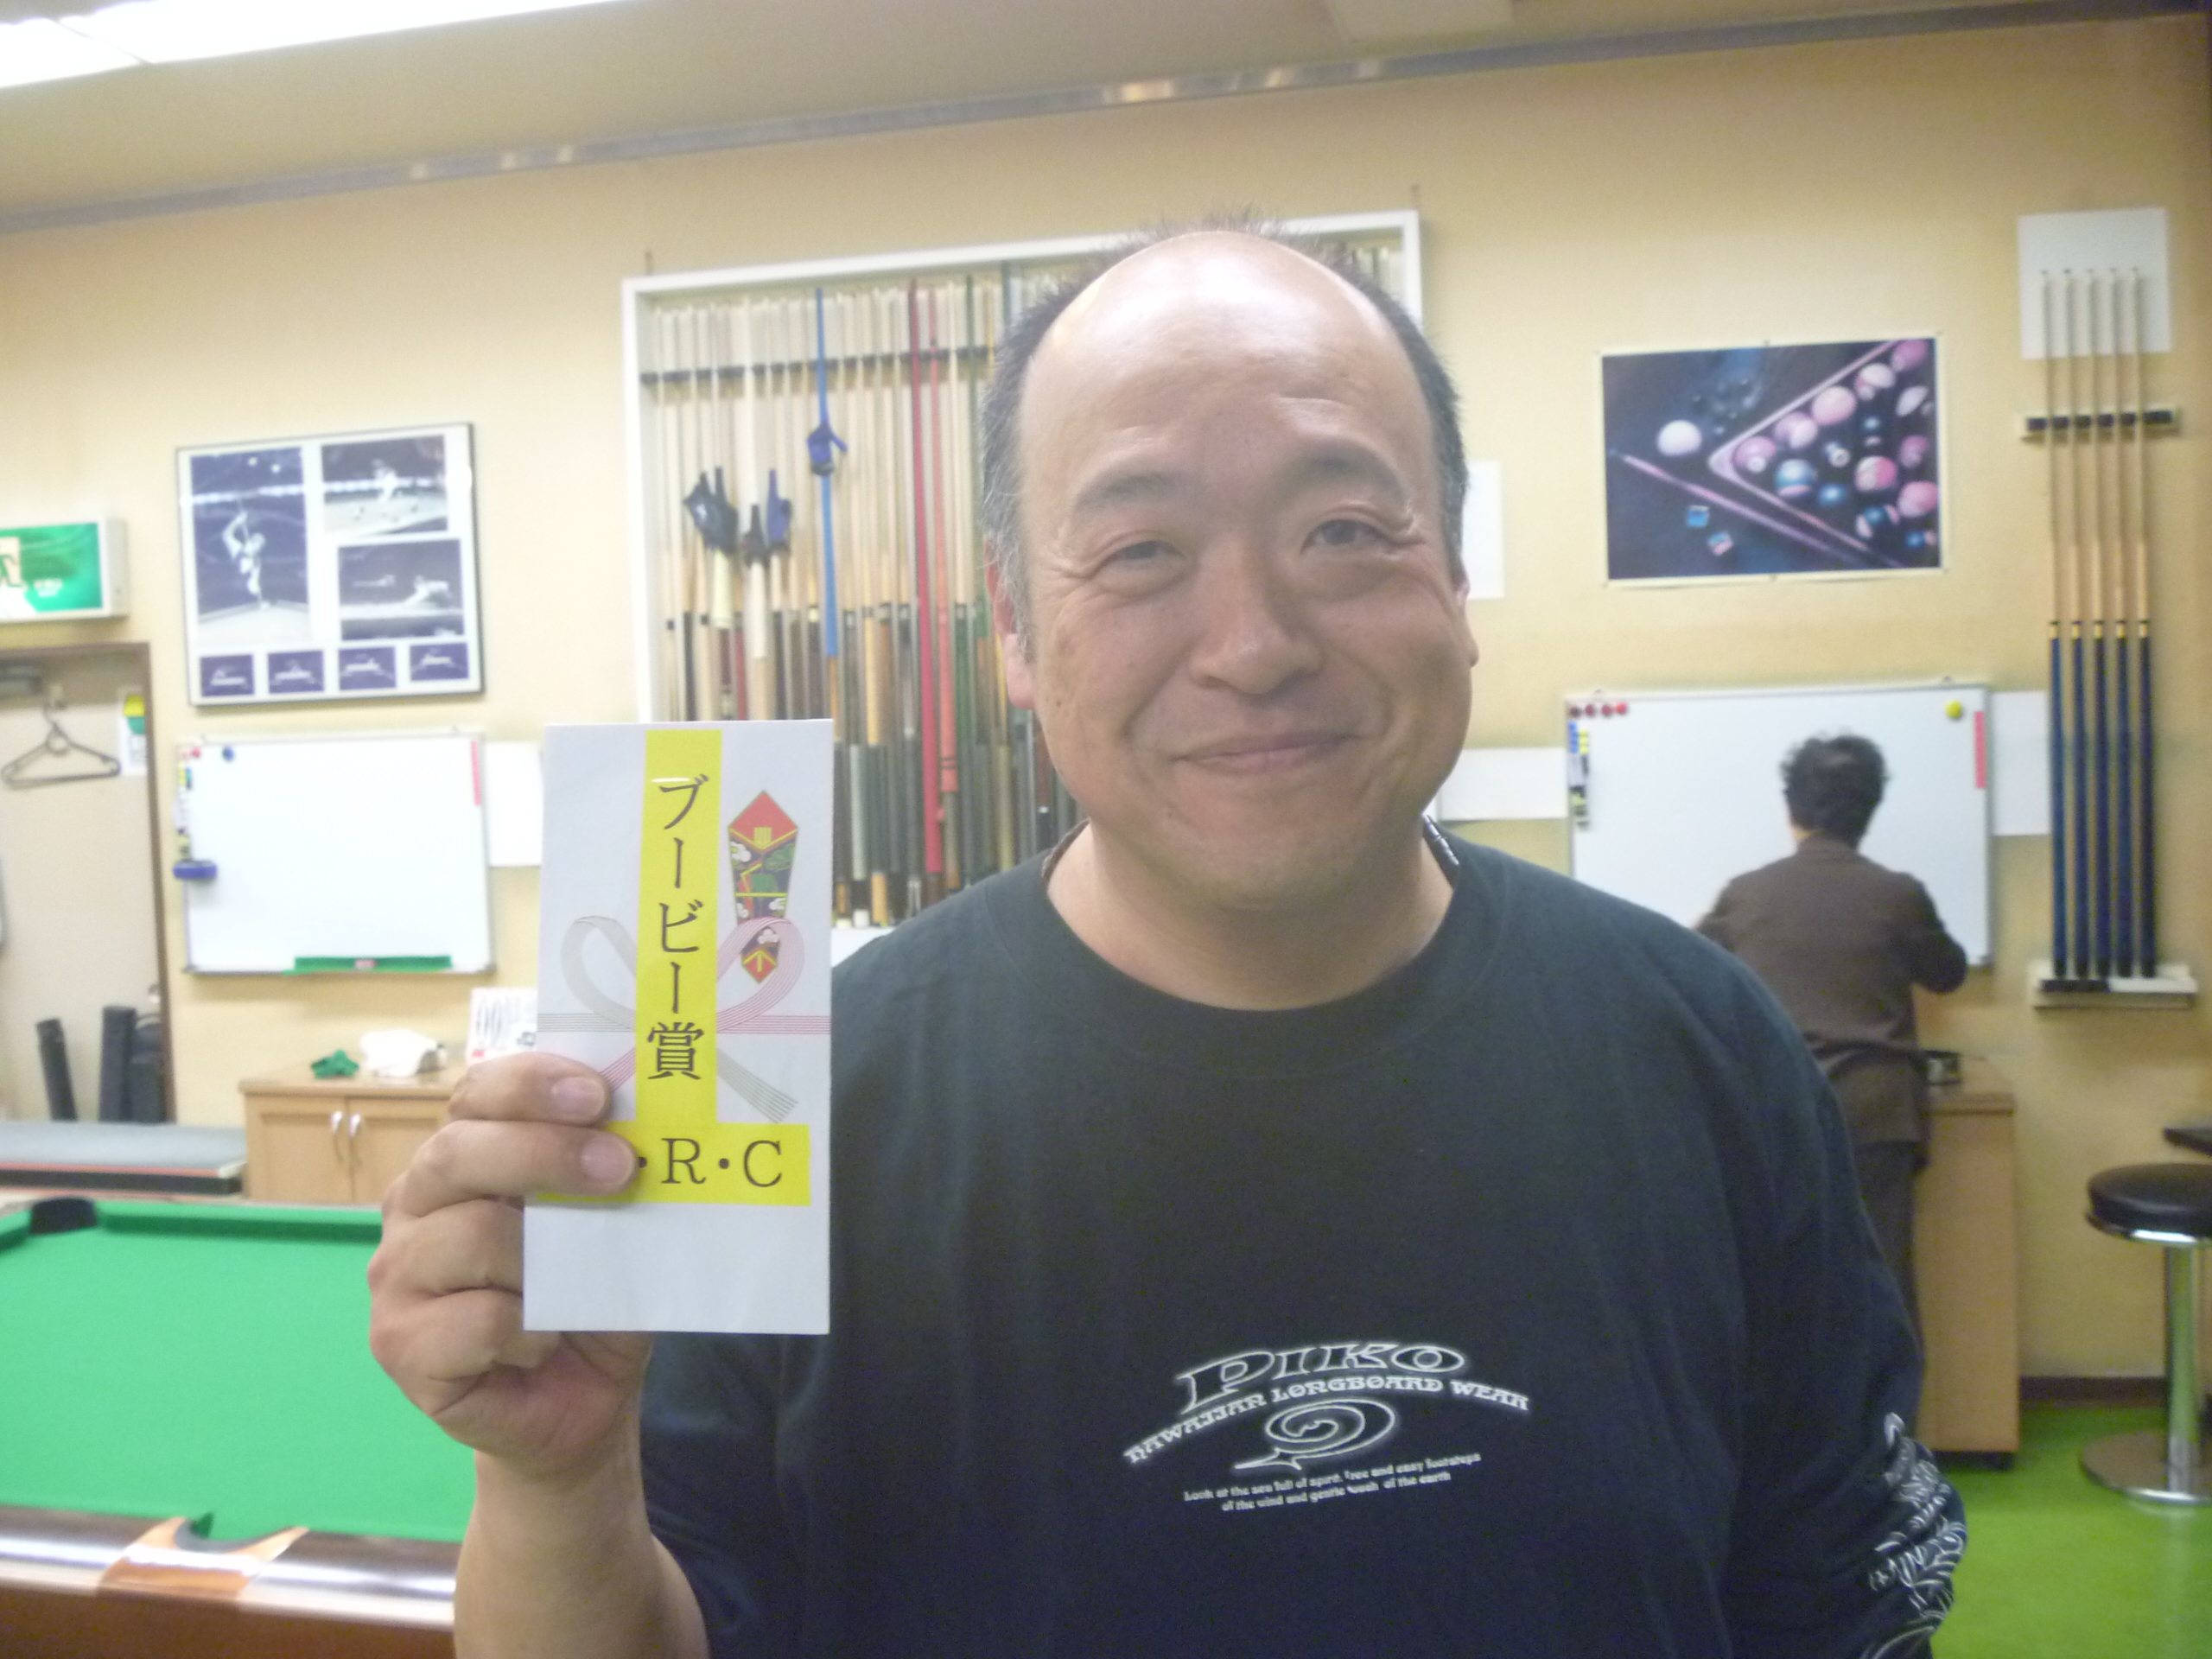 ブービー賞
・R・C
PIKO
HAWAIIAN LONGBOARD WEAR
Look at the sea full of spirit, free and easy footsteps
of the wind and gentle wash of the earth